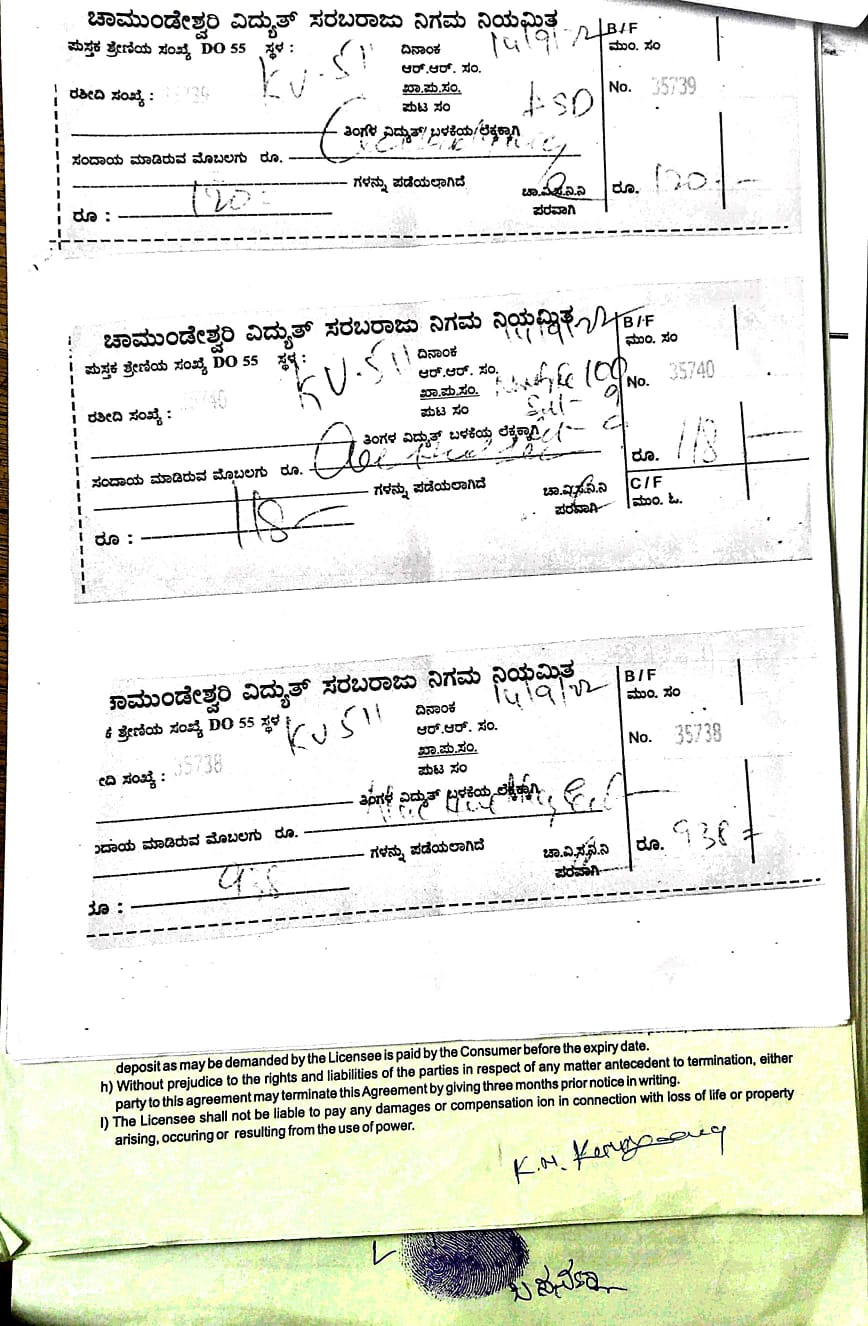 ಚಾಮುಂಡೇಶ್ವರಿ ವಿದ್ಯುತ್ ಸರಬರಾಜು ನಿಗಮ ನಿಯಮಿತ
ಪುಸ್ತಕ ಶ್ರೇಣಿಯ ಸಂಖ್ಯೆ DO 55 ಸ್ಥಳ : KV-S11 ದಿನಾಂಕ 14/9/22 B/F
ಮುಂ. ಸಂ
ಆರ್.ಆರ್. ಸಂ.
ರಶೀದಿ ಸಂಖ್ಯೆ : ಖಾ.ಪು.ಸಂ. No. 35739
ಪುಟ ಸಂ ASD
ತಿಂಗಳ ವಿದ್ಯುತ್ ಬಳಕೆಯ ಲೆಕ್ಕಕ್ಕಾಗಿ
ಸಂದಾಯ ಮಾಡಿರುವ ಮೊಬಲಗು ರೂ.
ಗಳನ್ನು ಪಡೆಯಲಾಗಿದೆ ಚಾ.ವಿ.ಸ.ನಿ.ನಿ ರೂ. 120-
ರೂ : 120- ಪರವಾಗಿ
ಚಾಮುಂಡೇಶ್ವರಿ ವಿದ್ಯುತ್ ಸರಬರಾಜು ನಿಗಮ ನಿಯಮಿತ
ಪುಸ್ತಕ ಶ್ರೇಣಿಯ ಸಂಖ್ಯೆ DO 55 ಸ್ಥಳ : KV-S11 ದಿನಾಂಕ 14/9/22 B/F
ಮುಂ. ಸಂ
ಆರ್.ಆರ್. ಸಂ.
ರಶೀದಿ ಸಂಖ್ಯೆ : ಖಾ.ಪು.ಸಂ. 100 No. 35740
ಪುಟ ಸಂ
ತಿಂಗಳ ವಿದ್ಯುತ್ ಬಳಕೆಯ ಲೆಕ್ಕಕ್ಕಾಗಿ
ಸಂದಾಯ ಮಾಡಿರುವ ಮೊಬಲಗು ರೂ. ರೂ. 118
ಗಳನ್ನು ಪಡೆಯಲಾಗಿದೆ ಚಾ.ವಿ.ಸ.ನಿ.ನಿ C/F
ರೂ : 118- ಪರವಾಗಿ ಮುಂ. ಓ.
ಚಾಮುಂಡೇಶ್ವರಿ ವಿದ್ಯುತ್ ಸರಬರಾಜು ನಿಗಮ ನಿಯಮಿತ
ಕ ಶ್ರೇಣಿಯ ಸಂಖ್ಯೆ DO 55 ಸ್ಥಳ : KV S11 ದಿನಾಂಕ 14/9/22 B/F
ಮುಂ. ಸಂ
ಆರ್.ಆರ್. ಸಂ.
ೀದಿ ಸಂಖ್ಯೆ : 35738 ಖಾ.ಪು.ಸಂ. No. 35738
ಪುಟ ಸಂ
ತಿಂಗಳ ವಿದ್ಯುತ್ ಬಳಕೆಯ ಲೆಕ್ಕಕ್ಕಾಗಿ
ಂದಾಯ ಮಾಡಿರುವ ಮೊಬಲಗು ರೂ.
ಗಳನ್ನು ಪಡೆಯಲಾಗಿದೆ ಚಾ.ವಿ.ಸ.ನಿ.ನಿ ರೂ. 938=
ರೂ : 938 ಪರವಾಗಿ
deposit as may be demanded by the Licensee is paid by the Consumer before the expiry date.
h) Without prejudice to the rights and liabilities of the parties in respect of any matter antecedent to termination, either
party to this agreement may terminate this Agreement by giving three months prior notice in writing.
I) The Licensee shall not be liable to pay any damages or compensation ion in connection with loss of life or property
arising, occuring or resulting from the use of power.
K.M.